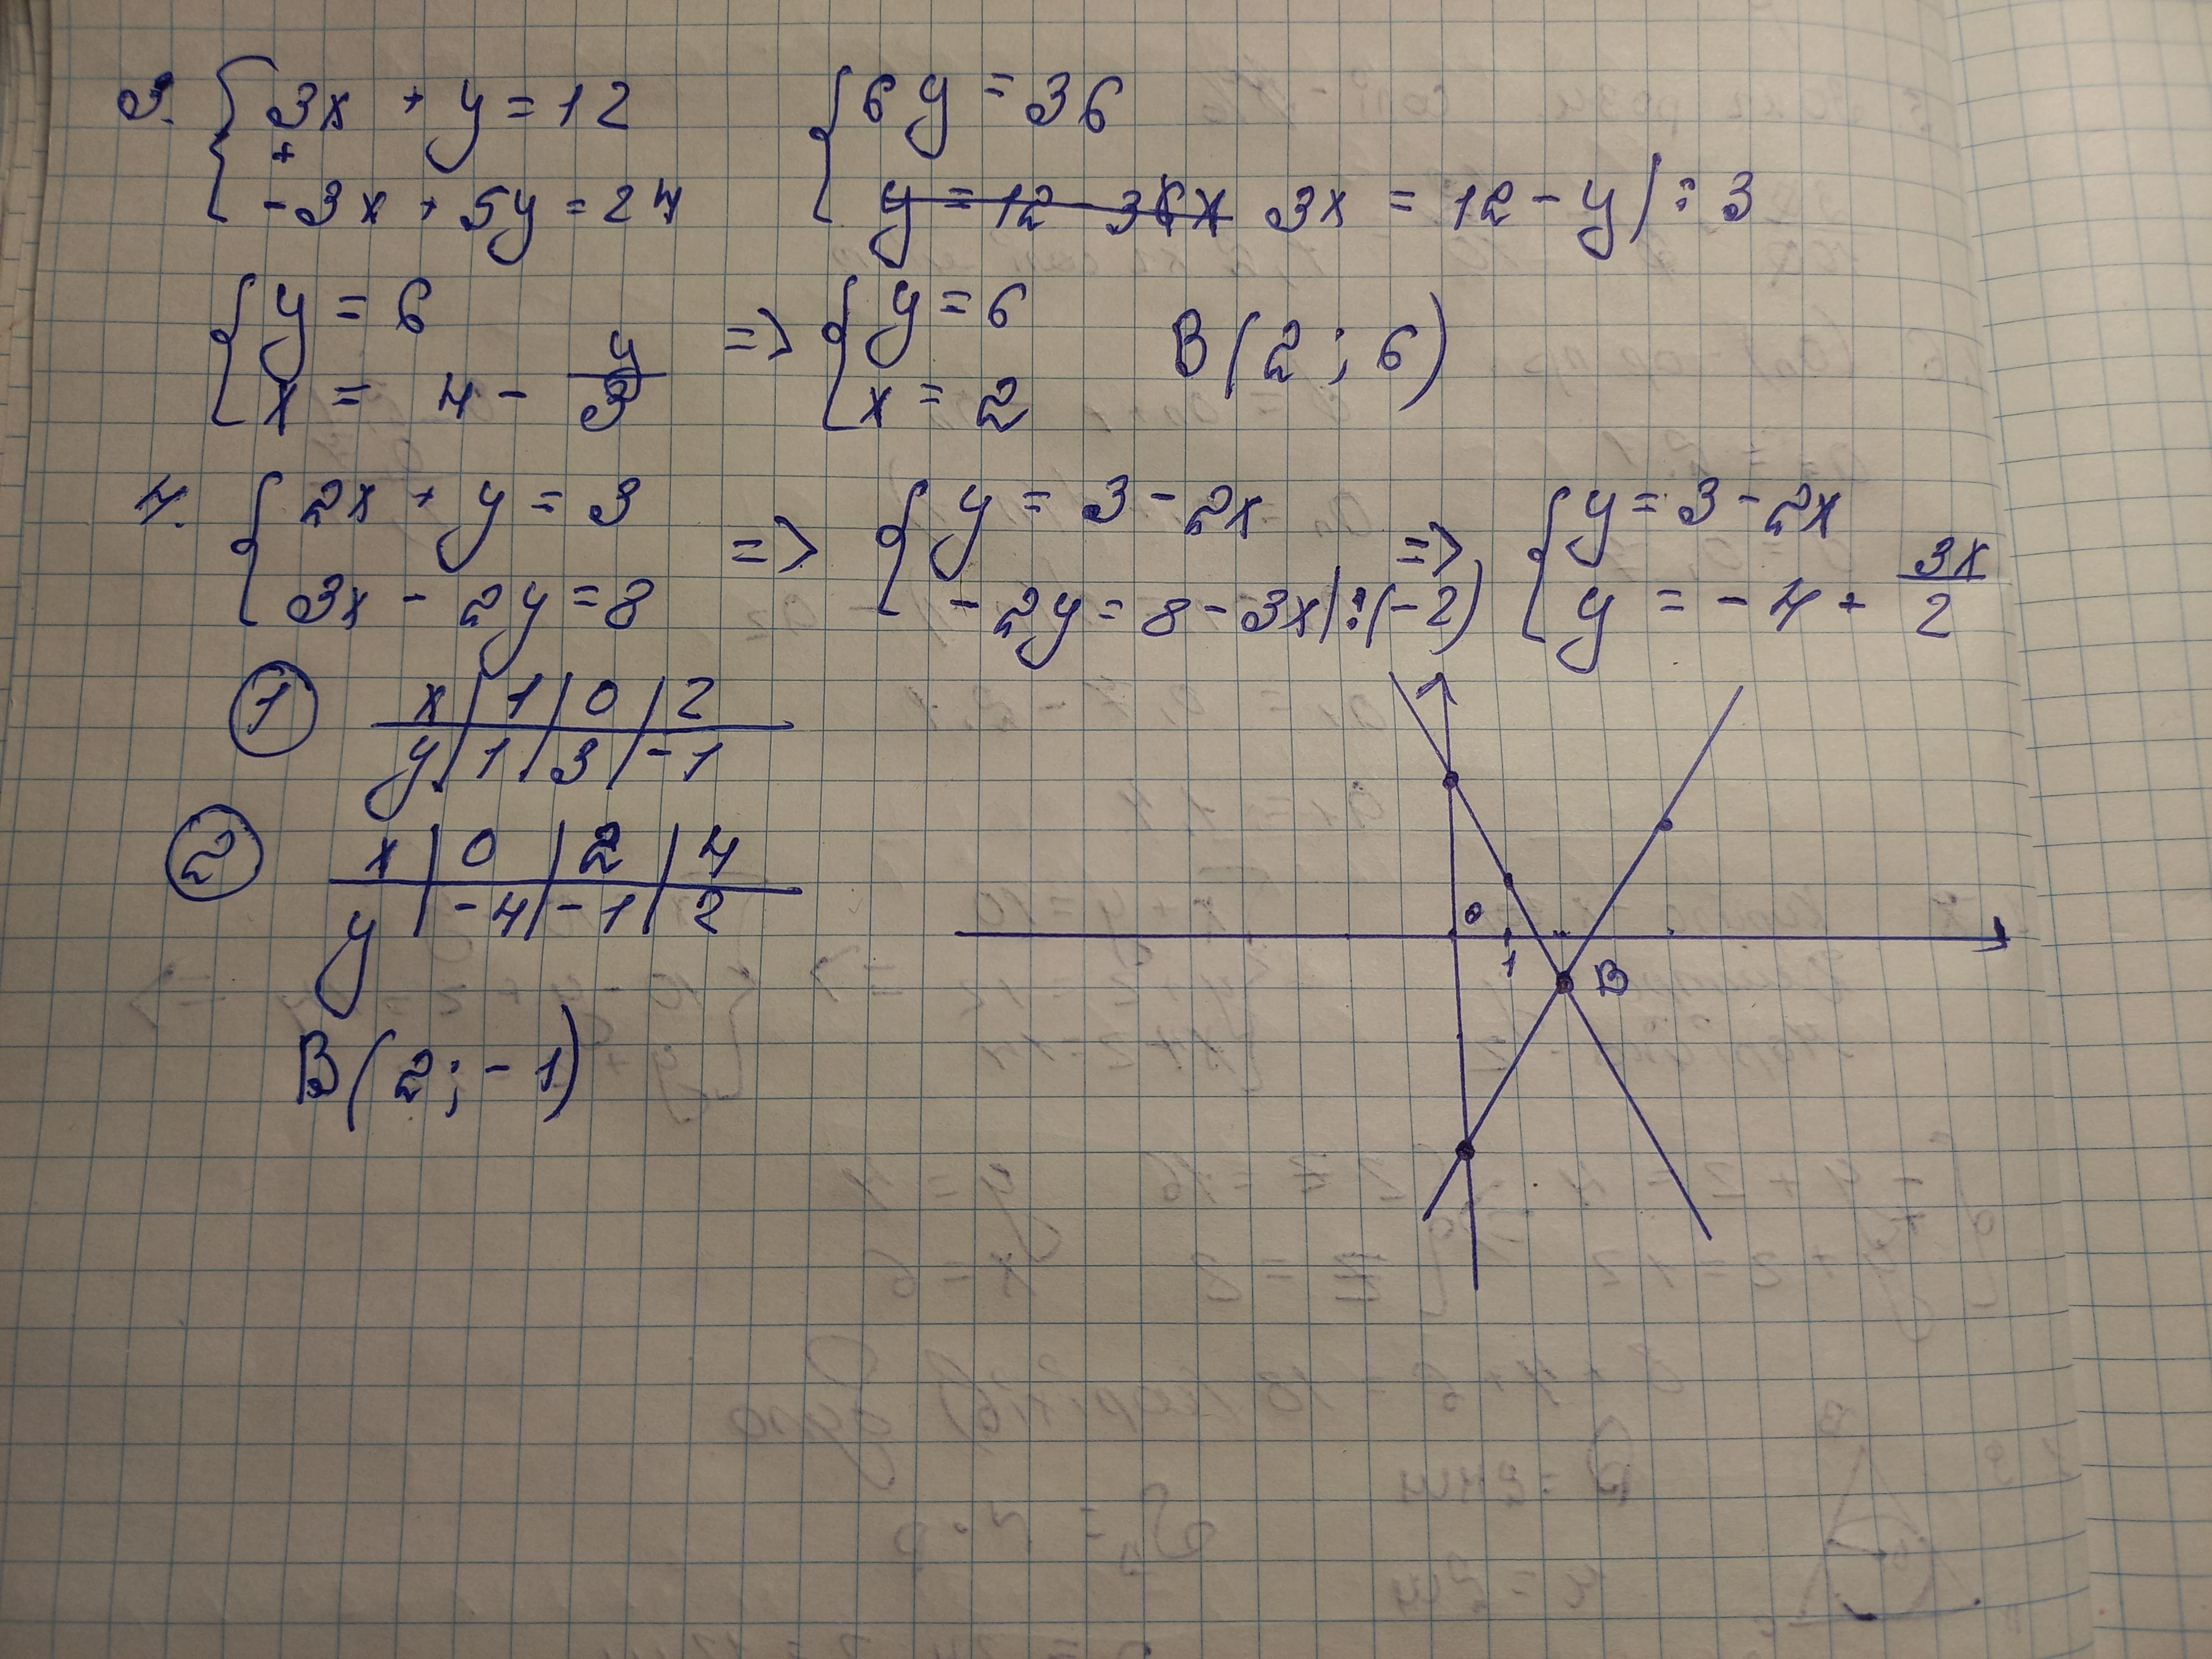 3. { 3x + y = 12
+
- 3x + 5y = 24
{ 6y = 36
y = 12 - 3x 3x = 12 - y | : 3
{ y = 6
x = 4 - y/3
=> { y = 6
x = 2
B(2 ; 6)
4. { 2x + y = 3
3x - 2y = 8
=> { y = 3 - 2x
- 2y = 8 - 3x | : (-2)
=> { y = 3 - 2x
y = - 4 + 3x/2
1 x | 1 | 0 | 2
y | 1 | 3 | - 1
2 x | 0 | 2 | 4
y | - 4 | - 1 | 2
B(2 ; - 1)
0
1
B